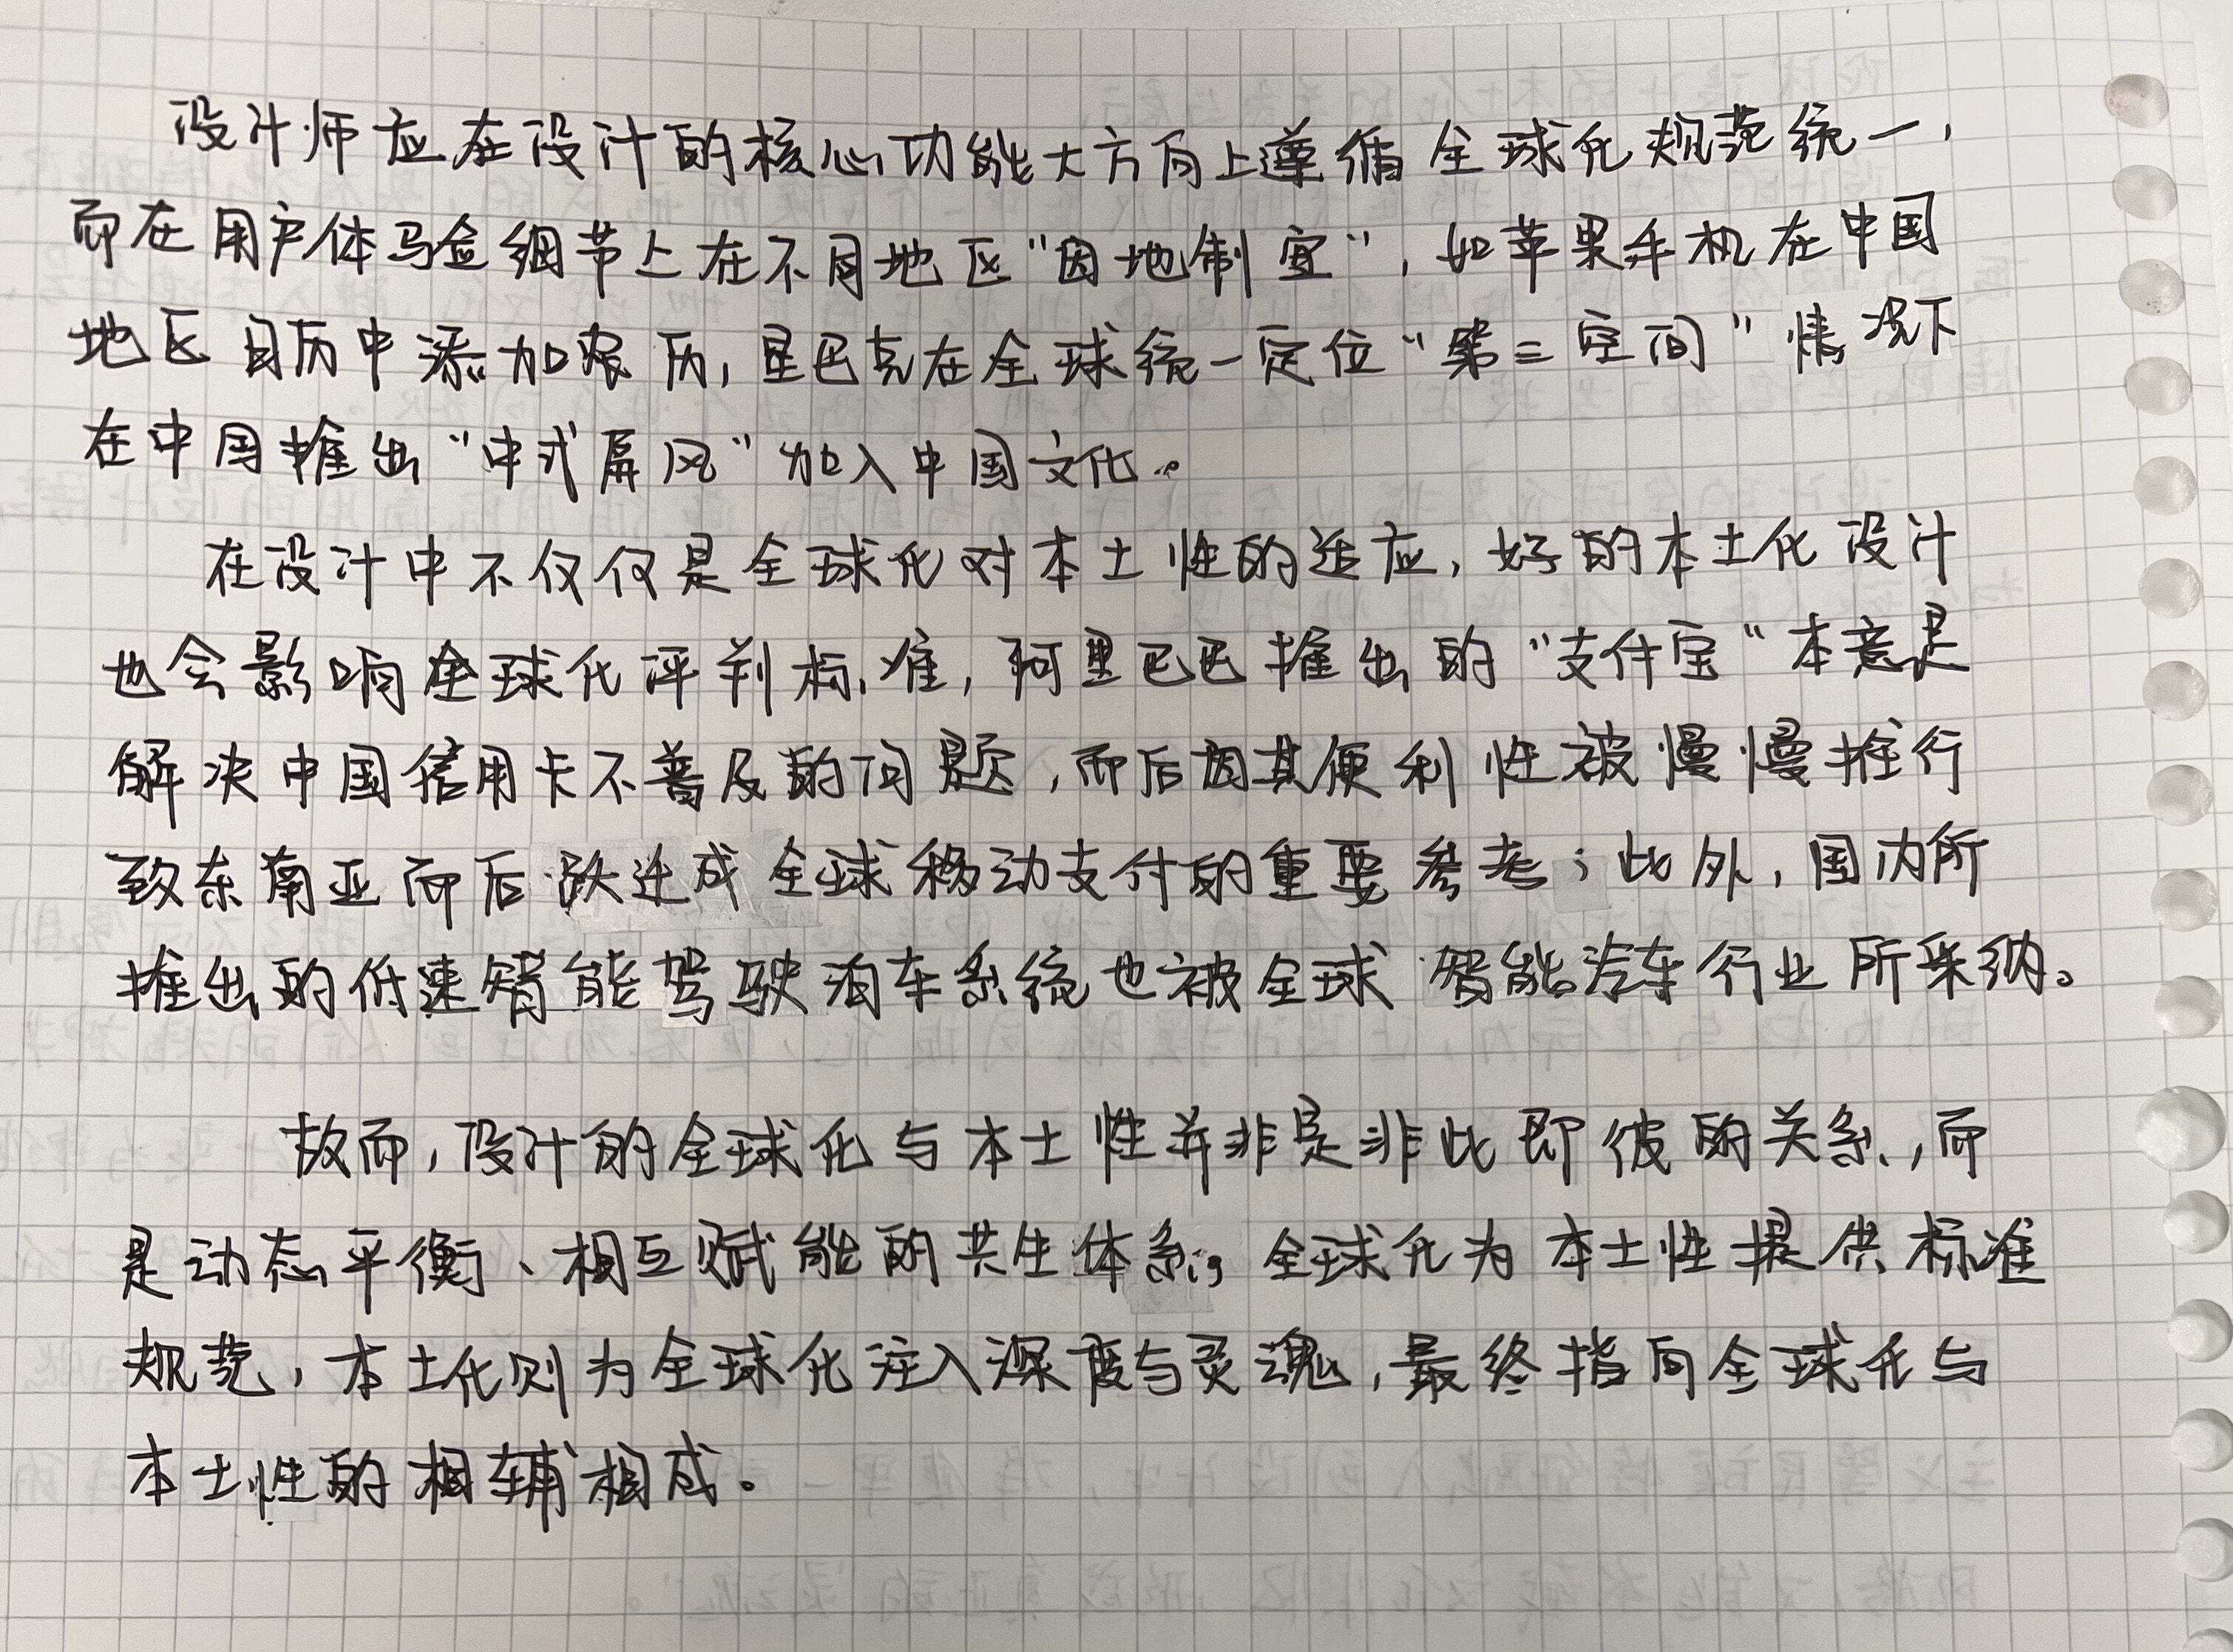 设计师应在设计的核心功能大方向上遵循全球化规范统一，
而在用户体验细节上在不同地区“因地制宜”，如苹果手机在中国
地区日历中添加农历，星巴克在全球统一定位“第三空间”情况下
在中国推出“中式屏风”加入中国文化。
在设计中不仅仅是全球化对本土性的适应，好的本土化设计
也会影响全球化评判标准，阿里巴巴推出的“支付宝“本意是
解决中国信用卡不普及的问题，而后因其便利性被慢慢推行
致东南亚而后跃迁成全球移动支付的重要参考；此外，国内所
推出的低速智能驾驶泊车系统也被全球智能汽车行业所采纳。
故而，设计的全球化与本土性并非是非此即彼的关系，而
是动态平衡、相互赋能的共生体系；全球化为本土性提供标准
规范，本土化则为全球化注入深度与灵魂，最终指向全球化与
本土性的相辅相成。